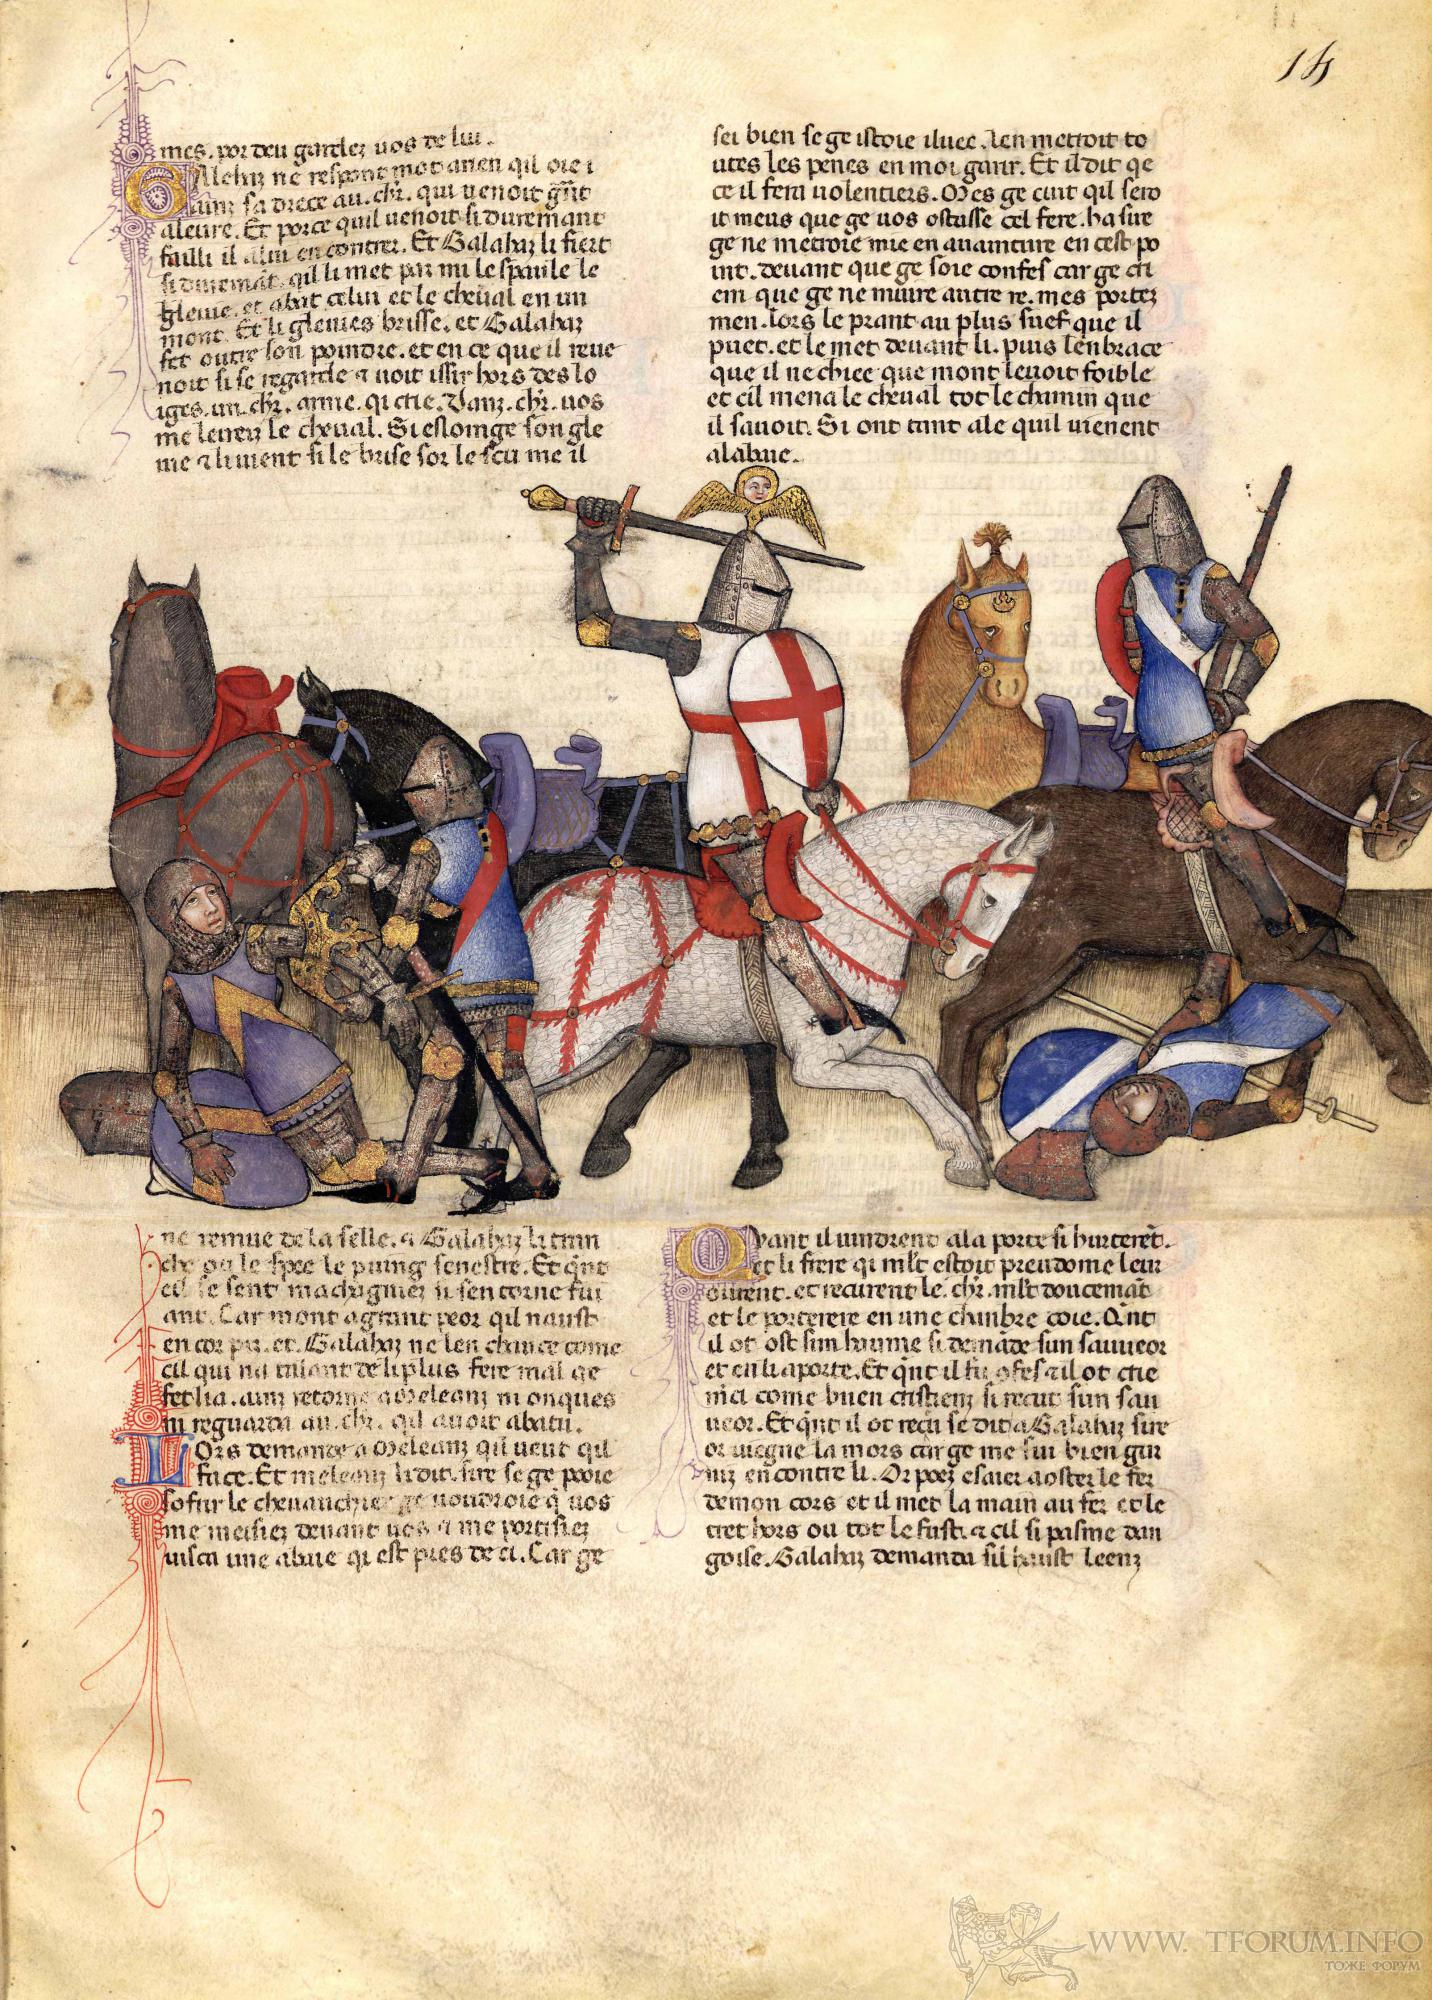 14
mes. por deu gardez uos de lui.
GAlehaz ne respont mot anen qil oie i
ainz sa drece au. chr. qui uenoit grnt
aleure. Et porce quil uenoit si durement
failli il alui en contrer. Et Galahaz li fiert
si duremat. qil li met par mi le spaule le
gleiue. et abat celui et le cheual en un
mont. Et li gleiues brisse. et Galahaz
fet outre son poindre. et en ce que il reue
noit si se regarde 7 uoit issir hors des lo
iges. un. chr. arme. qi crie. Danz. chr. uos
me leirez le cheual. Si esloinge son gle
iue 7 li uient si le brise sor le scu me il
sei bien se ge istoie iluec. len metroit to
utes les penes en moi garir. Et il dit qe
ce il fera uolentiers. Mes ge cuit qil sero
it meus que ge uos ostasse cel fere. ha sire
ge ne metroie mie en auainture en cest po
int. deuant que ge soie confes car ge cri
em que ge ne muire autre re. mes portez
men. lors le prant au plus suef que il
puet. et le met deuant li. puis lenbrace
que il ne chiee que mont leuoit foible
et cil mena le cheual tot le chimin que
il sauoit. Si ont tant ale quil uienent
alabaie.
ne remue de la selle. 7 Galahaz li tren
che ou le spee le puing senestre. Et qnt
cil se sent machignier si sen torne fui
ant. Car mont a grant peor qil naust
en cor pis. et. Galahaz ne len chauce come
cil qui na talant de li plus fere mal qe
fet li a. ainz retorne a Meleanz ni onques
ni reguarda au. chr. qil auoit abatu.
LOrs demande a Meleanz qil ueut qil
face. Et meleanz li dit. sire se ge peoie
sofrir le cheuauchier ge uoudroie q uos
me meisiez deuant uos 7 me portisiez
iusca une abaie qi est pres de ci. Car ge
QVant il uindrent ala porte si hurterent.
et li frere qi mlt estoit preudome leur
ourirent. et recurent le. chr. mlt doucemat
et le porterere en une chinbre coie. Qnt
il ot ost sun hiaume si demade sun sauueor
et en li aporte. Et qnt il fu ofes 7 il ot crie
merci come buen cristienz si recut sun sau
ueor. Et qnt il ot reçu se dit a Galahaz sire
or uiegne la mors car ge me sui bien gar
niz encontre li. Or poez esaier a oster le fer
de mon cors et il met la main au fer et le
tret hors ou tot le fust. 7 cil si pasme dan
goise. Galahaz demanda sil haust leenz
WWW. TFORUM.INFO
ТОЖЕ ФОРУМ